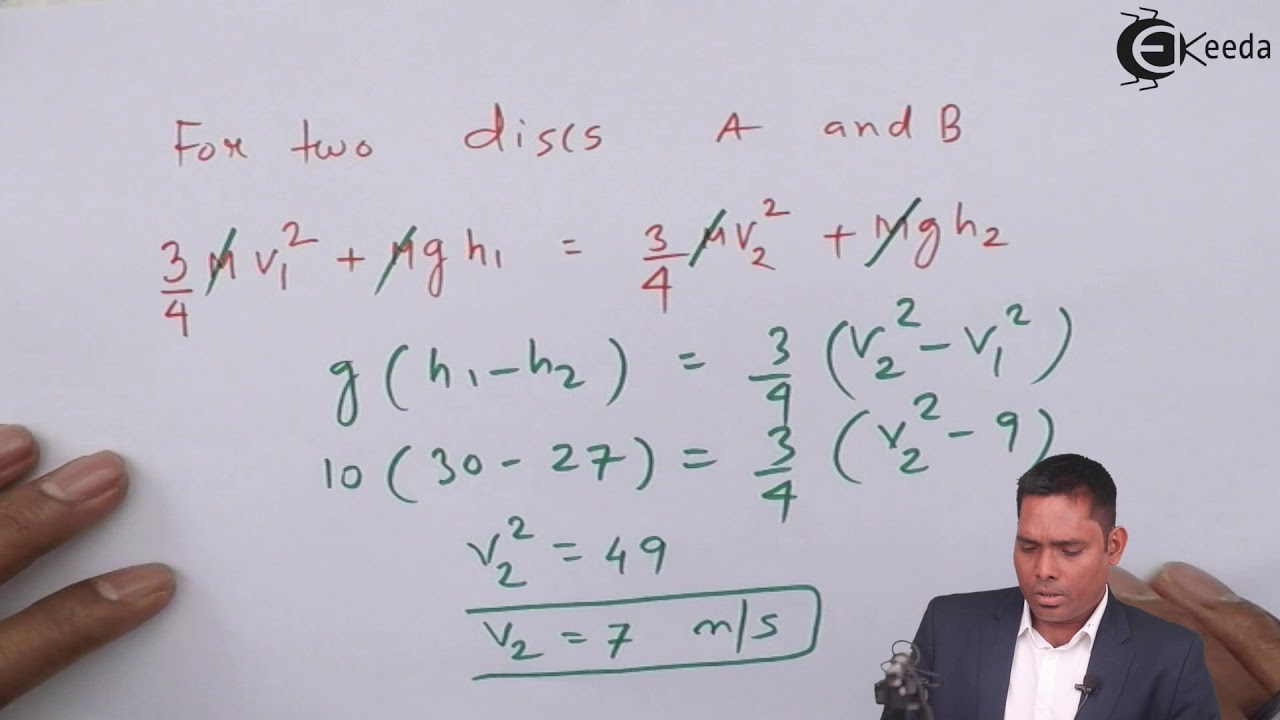 Keeda
For two discs A and B
3/4 M v₁² + M g h₁ = 3/4 M v₂² + M g h₂
g (h₁ - h₂) = 3/4 (v₂² - v₁²)
10 (30 - 27) = 3/4 (v₂² - 9)
v₂² = 49
v₂ = 7 m/s